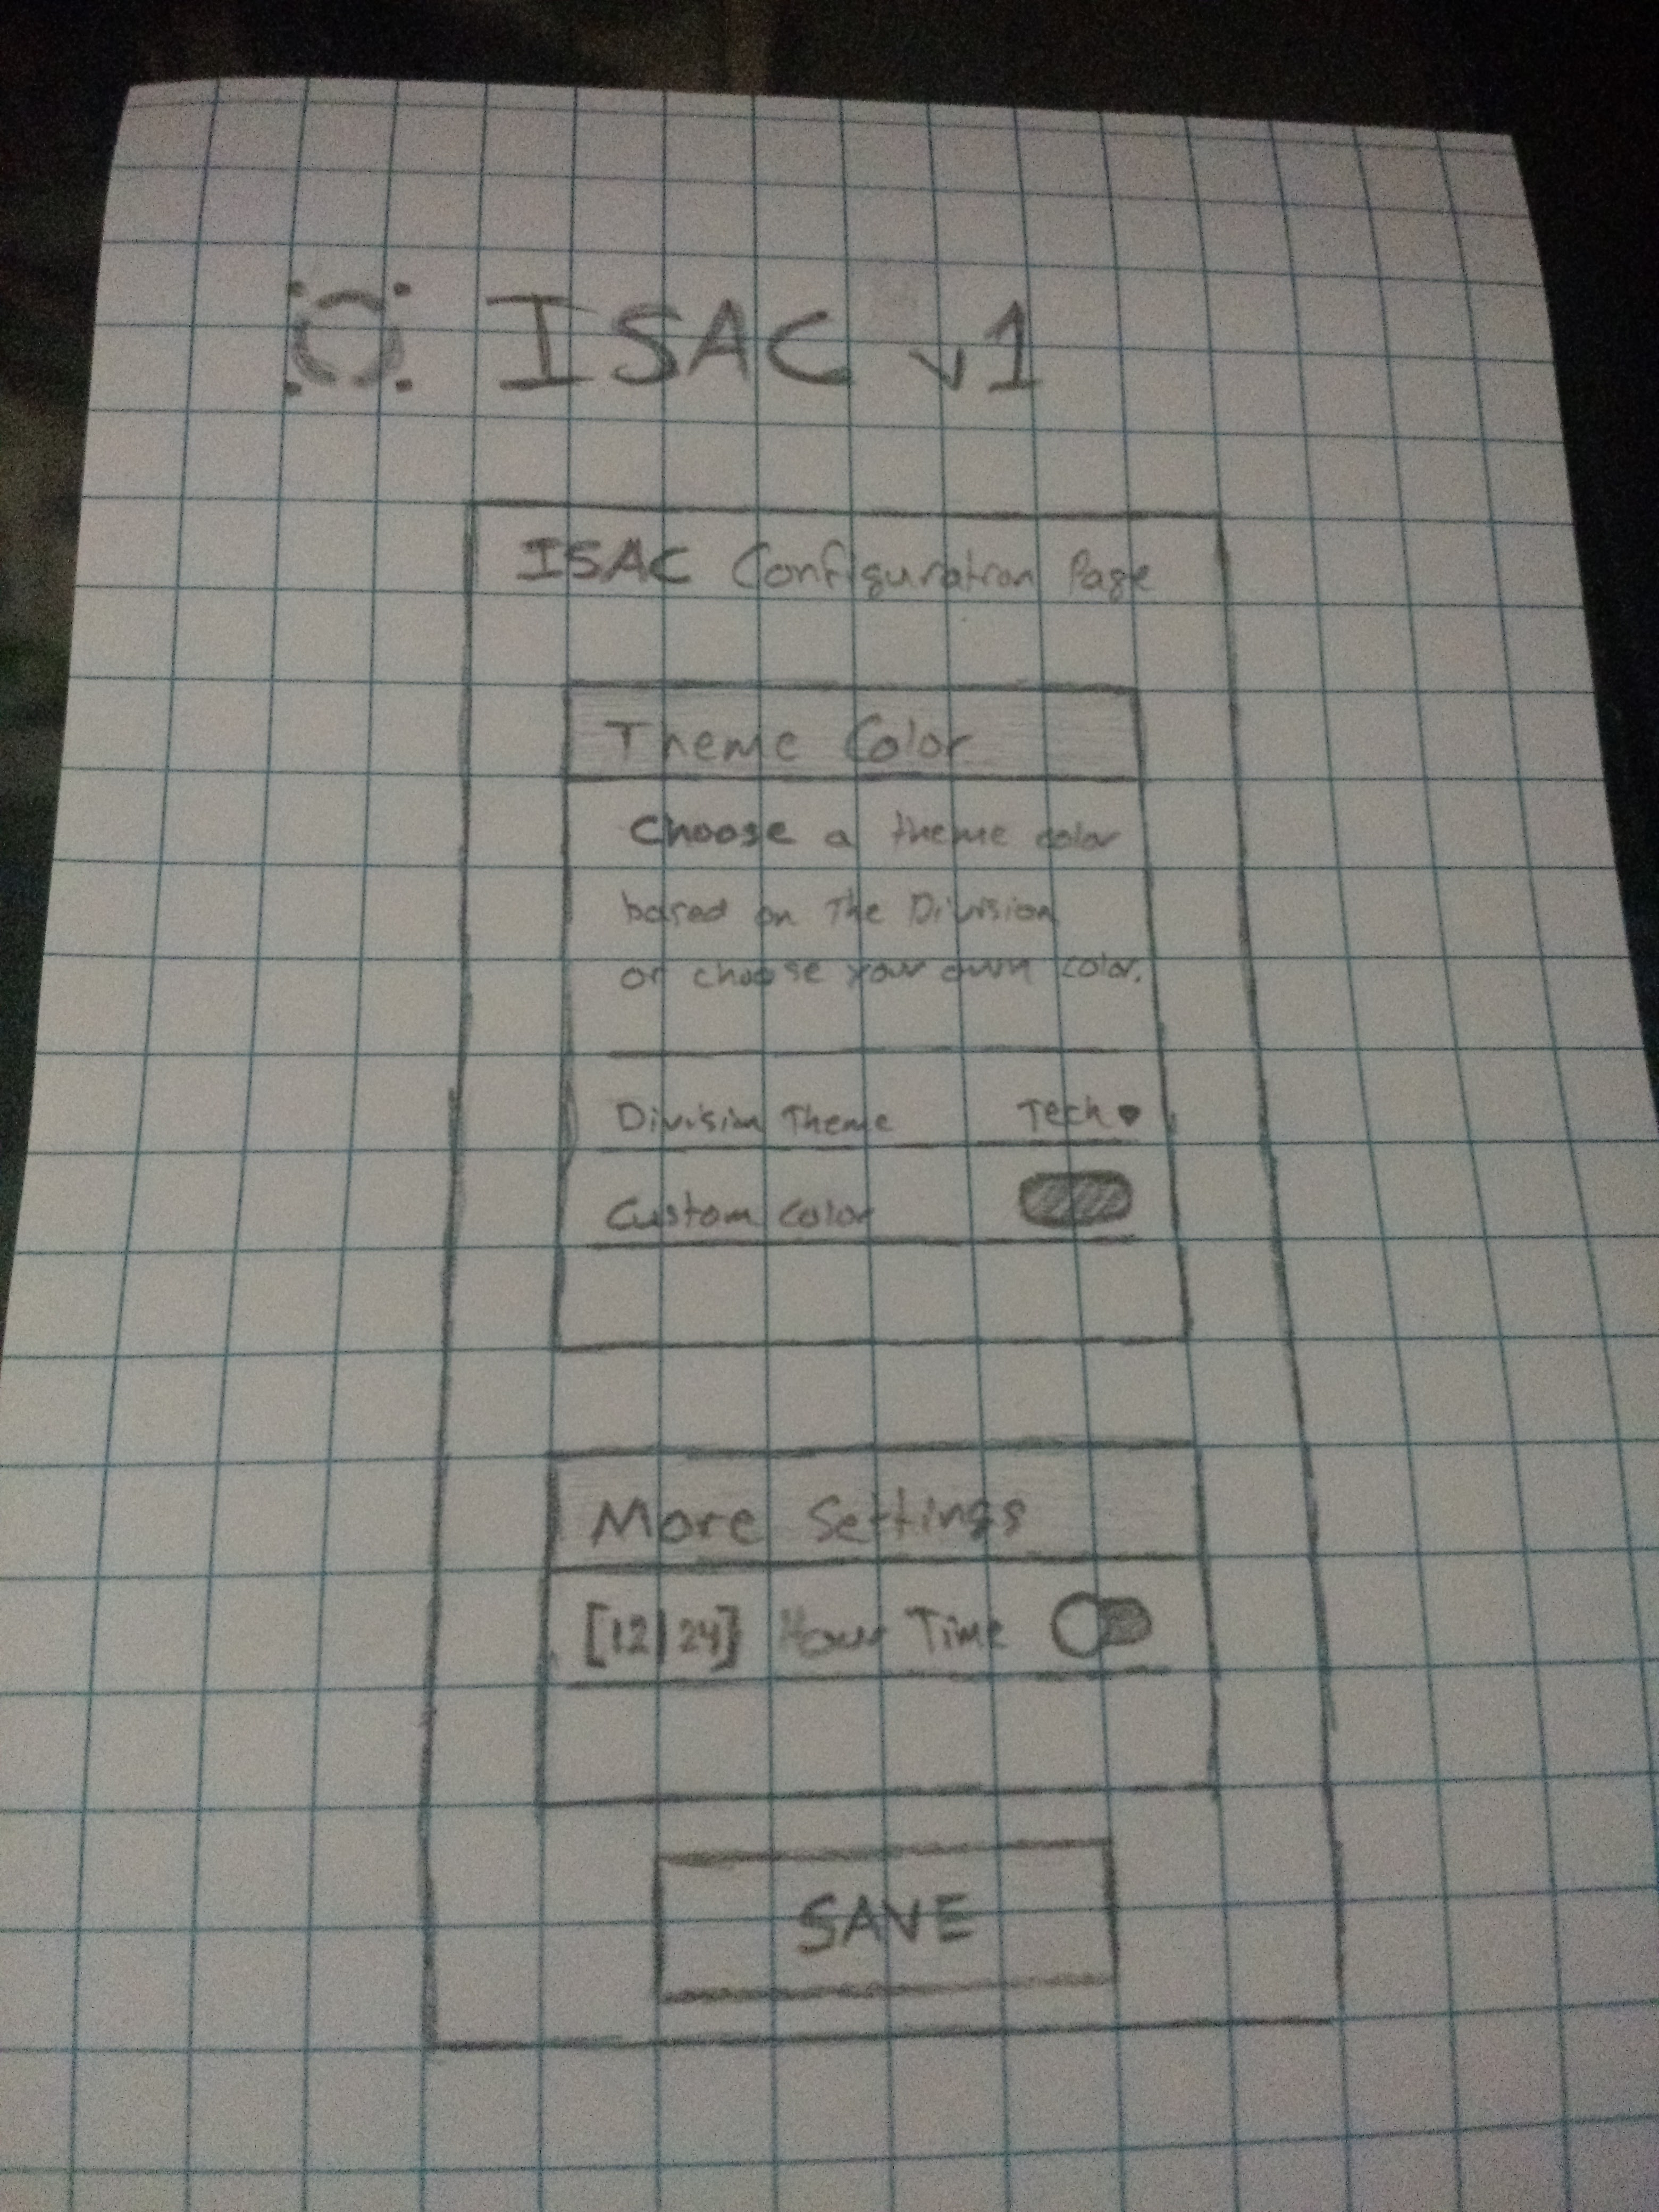 ISAC v1
ISAC Configuration Page
Theme Color
Choose a theme color
based on The Division
or choose your own color.
Division Theme Tech
Custom Color
More Settings
[12|24] Hour Time
SAVE